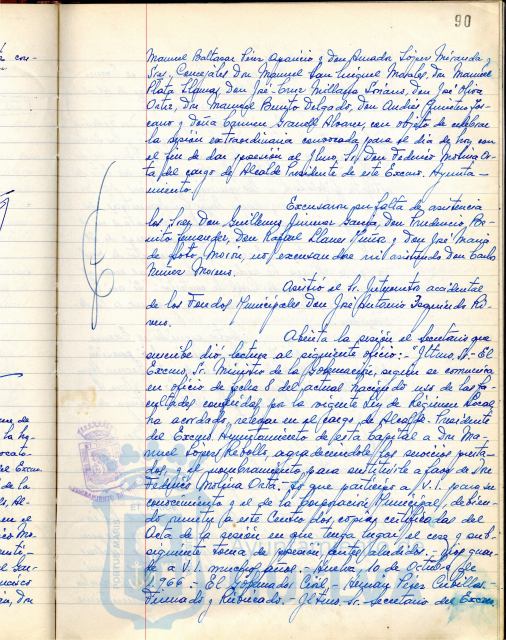 90
Manuel Baltasar Pérez Aparicio y Don Amador López Miranda
Sres. Concejales Don Manuel San Miguel Morales, Don Manuel
Plata Llamas, Don José Cruz Millana Soriano, Don José Oliva
Ortiz, Don Manuel Benito Delgado, Don Andrés
y Doña Carmen Granell Alvarez, con objeto de celebrar
la sesión extraordinaria convocada para el día de hoy con
el fin de dar posesión al Iltmo. Sr. Don Federico Molina Or-
ta del cargo de Alcalde Presidente de este Excmo. Ayunta-
miento.
Excusaron su falta de asistencia
los Sres. Don Guillermo Jimenez García, Don Prudencio Be-
nito Fernandez, Don Rafael Llanes y Don José María
de Soto, no excusandose ni asistiendo Don Carlos
Nuñez Moreno.
Asistió el Sr. Interventor accidental
de los Fondos Municipales Don José Antonio Izquierdo Ri-
vero.
Abierta la sesión el Secretario que
suscribe dió lectura al siguiente oficio: - "Iltmo. Sr. - El
Excmo. Sr. Ministro de la Gobernación, según se comunica
en oficio de fecha 8 del actual haciendo uso de las fa-
cultades conferidas por la vigente Ley de Régimen Local
ha acordado relevar en el cargo de Alcalde-Presidente
del Excmo. Ayuntamiento de esta Capital a Don Ma-
nuel López Rebollo, agradeciendole los servicios presta-
dos, y el nombramiento para sustituirle a favor de Don
Federico Molina Orta. - Lo que participo a V.I. para su
conocimiento y el de la Corporación Municipal, debien-
do remitir a este Centro dos copias certificadas del
Acta de la sesión en que tenga lugar el cese y sub-
siguiente toma de posesión antes aludidos. - Dios guar-
de a V.I. muchos años. - Huelva 10 de Octubre de
1.966 - El Gobernador Civil, - Hernán Pérez Cubillas. -
Firmado y Rubricado. - Iltmo. Sr. Secretario del Excmo.